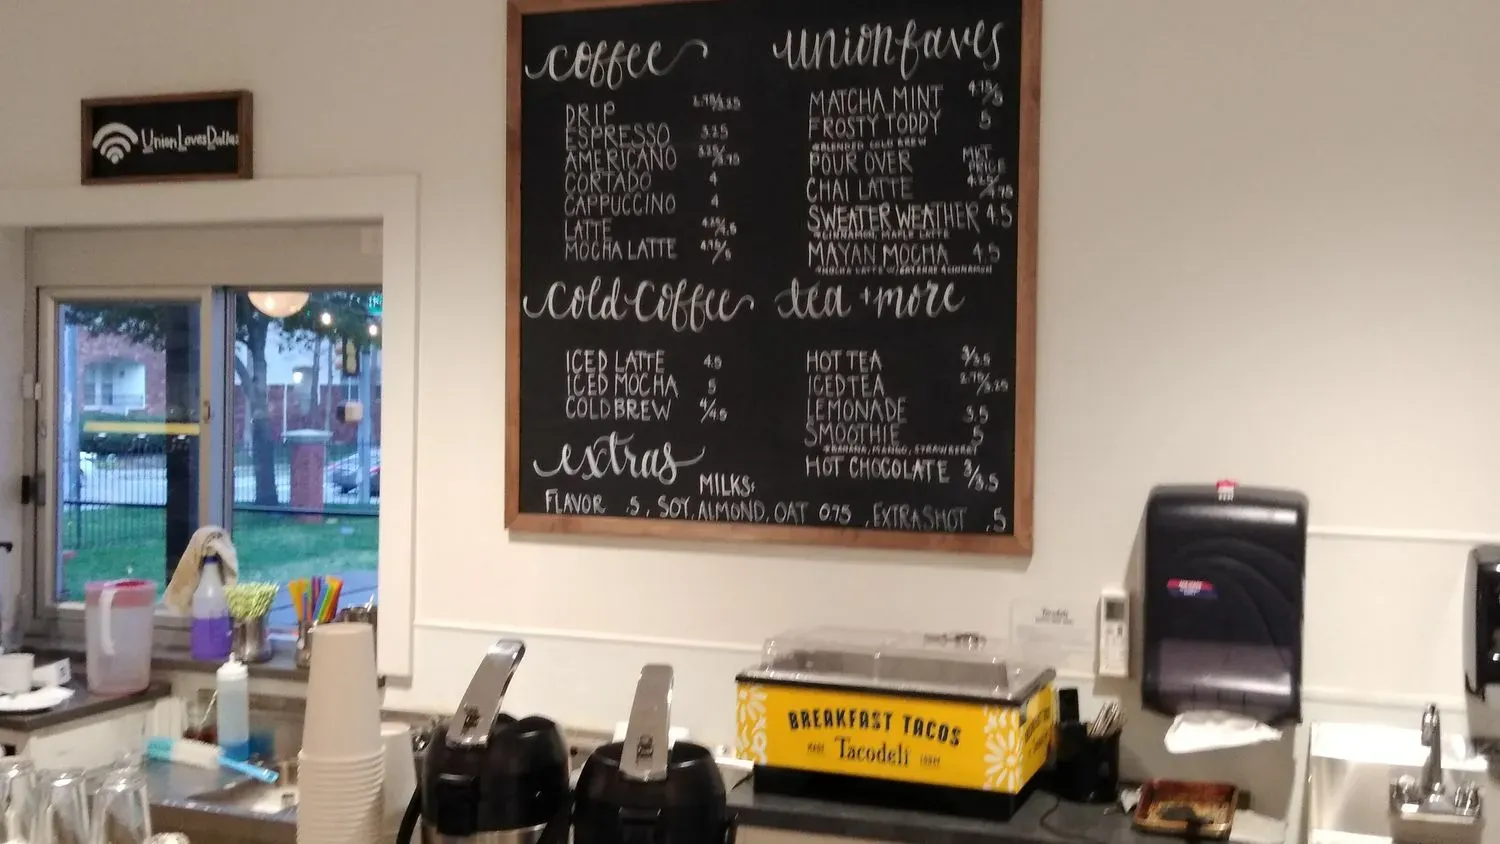 UnionLovesDallas
coffee
DRIP 2.75/3.25
ESPRESSO 3.25
AMERICANO 3.25/3.75
CORTADO 4
CAPPUCCINO 4
LATTE 4.25/4.5
MOCHA LATTE 4.75/5
cold coffee
ICED LATTE 4.5
ICED MOCHA 5
COLD BREW 4/4.5
extras
MILKS:
FLAVOR .5, SOY, ALMOND, OAT 0.75, EXTRA SHOT .5
union faves
MATCHA MINT 4.75/5
FROSTY TODDY 5
*BLENDED COLD BREW
POUR OVER MKT PRICE
CHAI LATTE 4.25/4.75
SWEATER WEATHER 4.5
*CINNAMON, MAPLE LATTE
MAYAN MOCHA 4.5
*MOCHA LATTE W/ CAYENNE & CINNAMON
tea + more
HOT TEA 3/3.5
ICED TEA 2.75/3.25
LEMONADE 3.5
SMOOTHIE 5
*BANANA, MANGO, STRAWBERRY
HOT CHOCOLATE 3/3.5
BREAKFAST TACOS
MADE Tacodeli LOCAL
Tacodeli